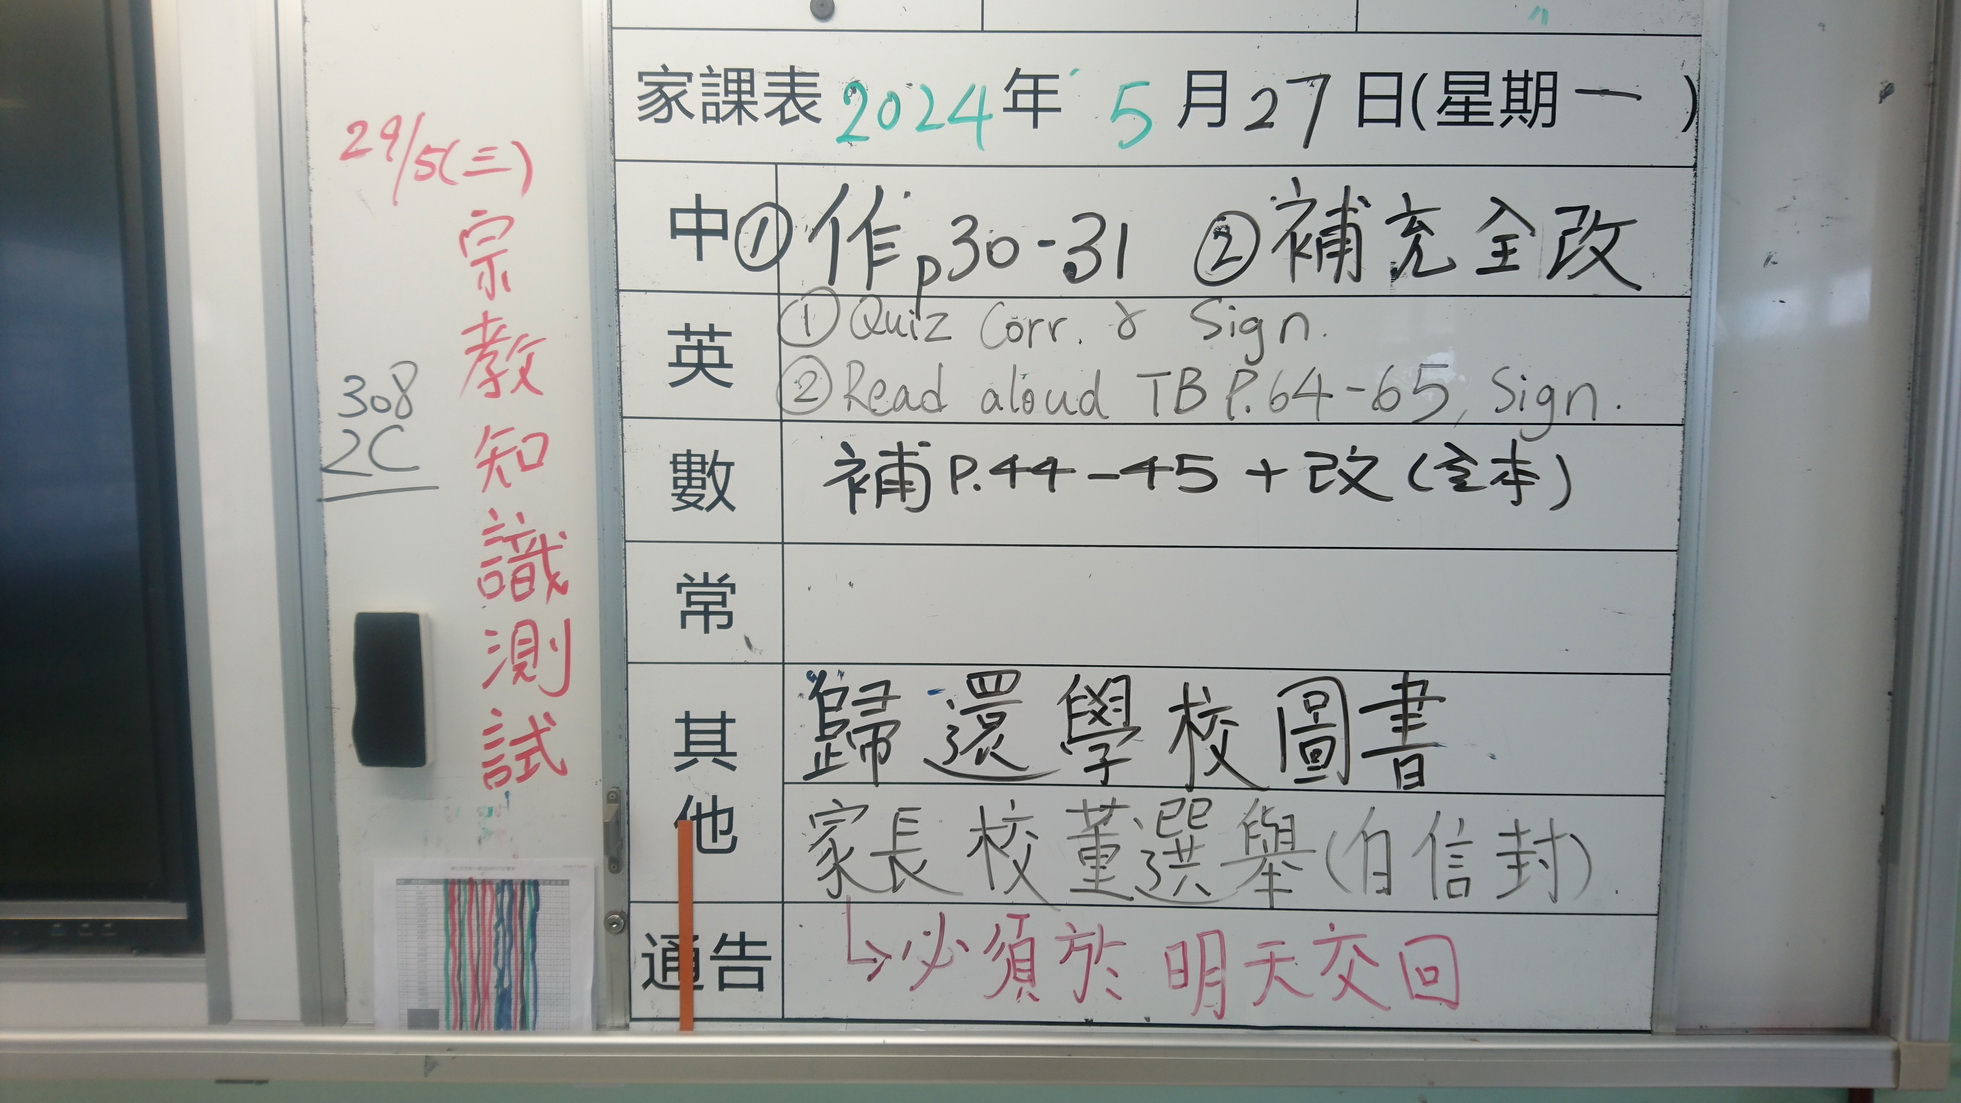 29/5(三)
宗教知識測試
308
2C
家課表 2024年 5月27日(星期一 )
中 ①作p30-31 ②補充全改
英 ①Quiz Corr. & Sign.
②Read aloud TB P.64-65, Sign.
數 補P.44-45+改(全本)
常
其他 歸還學校圖書
家長校董選舉(白信封).
通告 ↳必須於明天交回